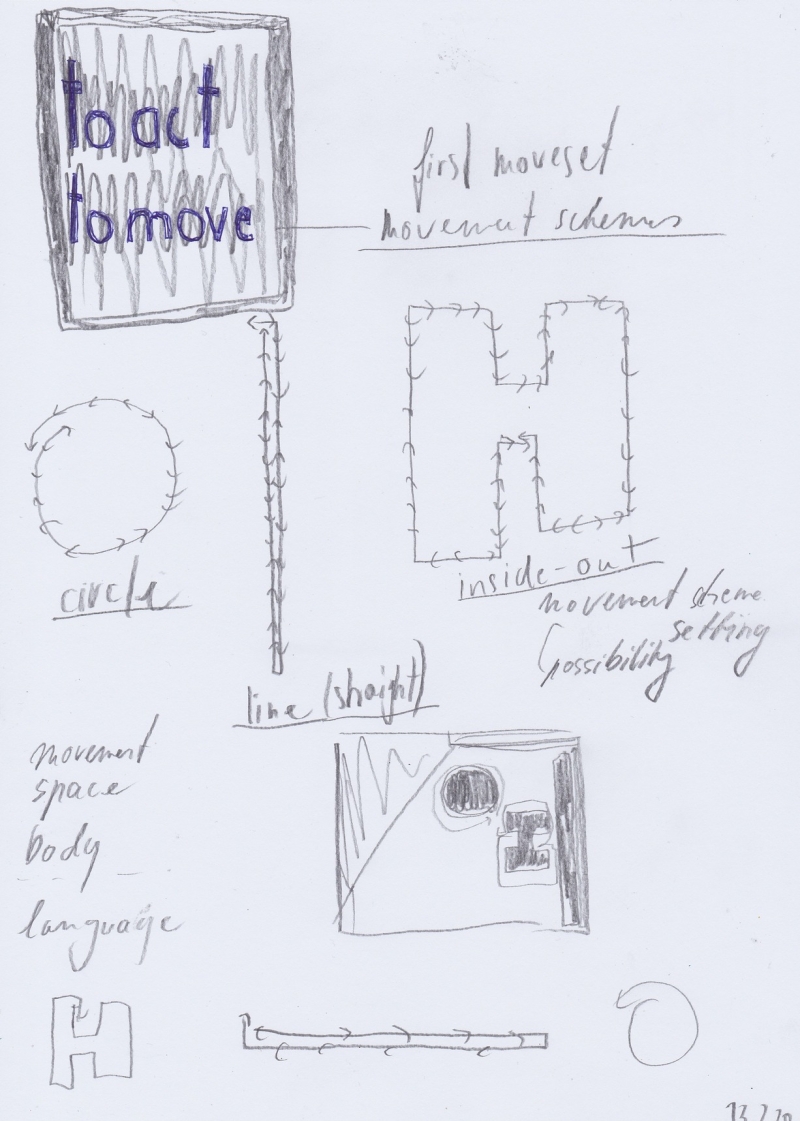 to act
to move
first moveset
movement schemes
circle
inside-out
movement scheme
setting
(possibility
line (straight)
movement
space
body
language